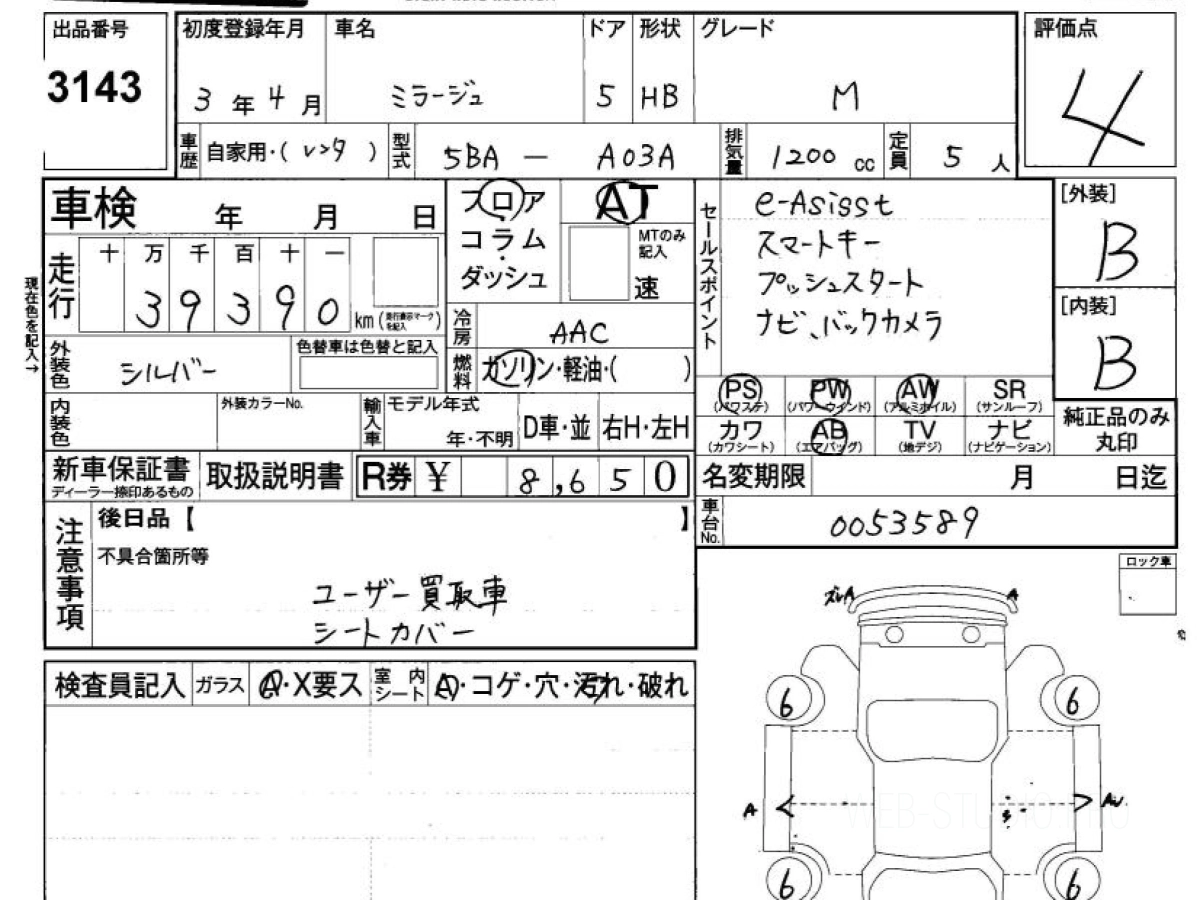 出品番号 初度登録年月 車名 ドア 形状 グレード 評価点
3143 3年4月 ミラージュ 5 HB M 4
車歴 自家用・( レンタ ) 型式 5BA — A03A 排気量 1200 cc 定員 5 人
車検 年 月 日
フロア・コラム・ダッシュ AT MTのみ記入 速
セールスポイント
e-Asisst
スマートキー
プッシュスタート
ナビ、バックカメラ
[外装] B
[内装] B
現在色を記入→
走行 十 万 千 百 十 一
39390 km
冷房 AAC
外装色 シルバー 色替車は色替と記入
燃料 ガソリン・軽油・( )
内装色 外装カラーNo. 輸入車 モデル年式 年・不明 D車・並 右H・左H
PS (パワステ) PW (パワーウインド) AW (アルミホイル) SR (サンルーフ)
カワ (カワシート) AB (エアバッグ) TV (地デジ) ナビ (ナビゲーション)
純正品のみ丸印
新車保証書 ディーラー捺印あるもの 取扱説明書 R券 ¥ 8,650
名変期限 月 日迄
車台No. 0053589
注意事項 後日品【 】
不具合箇所等
ユーザー買取車
シートカバー
ロック車
A A
検査員記入 ガラス A・X要ス 室内シート A・コゲ・穴・汚れ・破れ
6 6
A
WEB-STUDIO.PRO
6 6